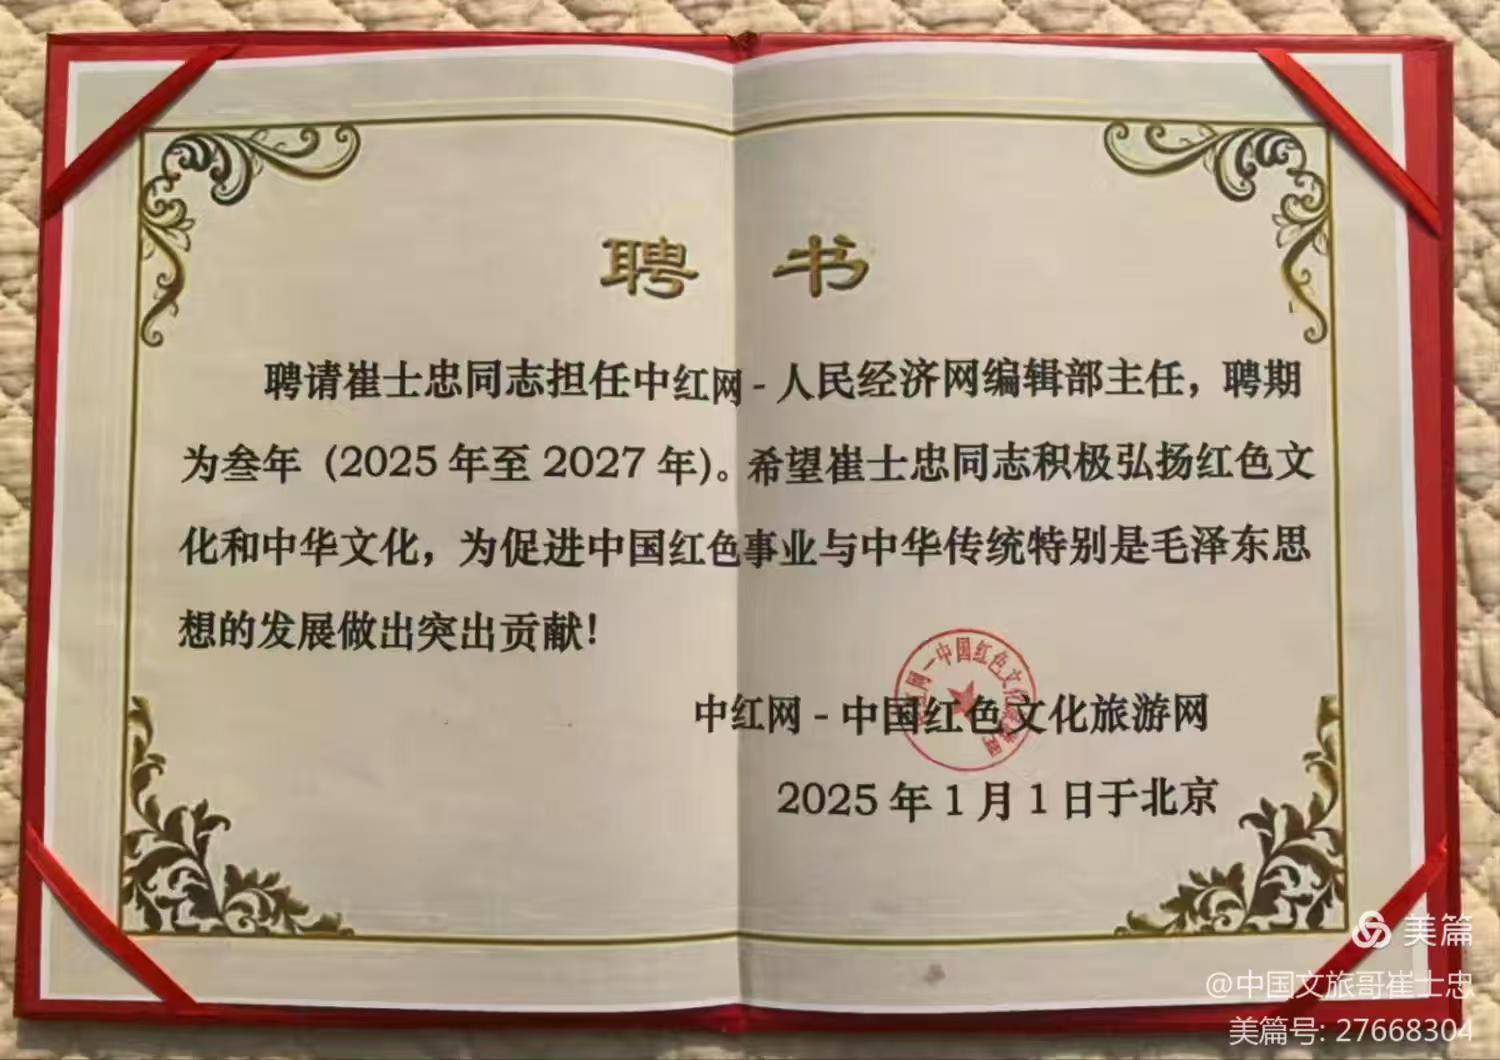 聘 书
聘请崔士忠同志担任中红网-人民经济网编辑部主任，聘期
为叁年（2025年至2027年）。希望崔士忠同志积极弘扬红色文
化和中华文化，为促进中国红色事业与中华传统特别是毛泽东思
想的发展做出突出贡献！
中红网-中国红色文化旅游网
2025年1月1日于北京
红网一中国红色文化
美篇
@中国文旅哥崔士忠
美篇号: 27668304